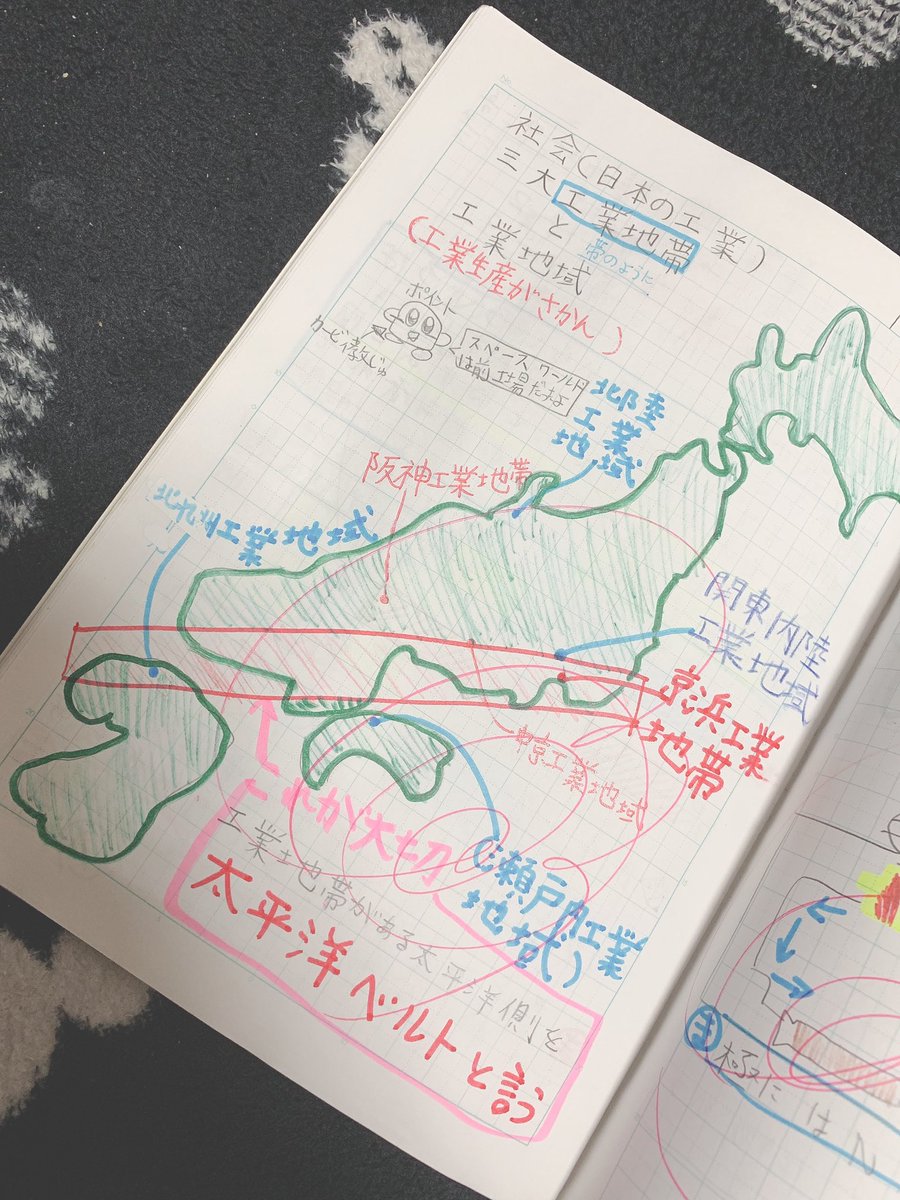 社会(日本の工業)
三大工業地帯
と
帯のように
工業地域
(工業生産がさかん)
ポイント
カービィ教じゅ
スペースワールド
は前工場だたよ
北陸
工業
地域
阪神工業地帯
北九州工業地域
関東内陸
工業地域
京浜工業
地帯
中京工業地域
これが大切
瀬戸内工業
地域
工業地帯がある太平洋側を
太平洋ベルトと言う
極には N